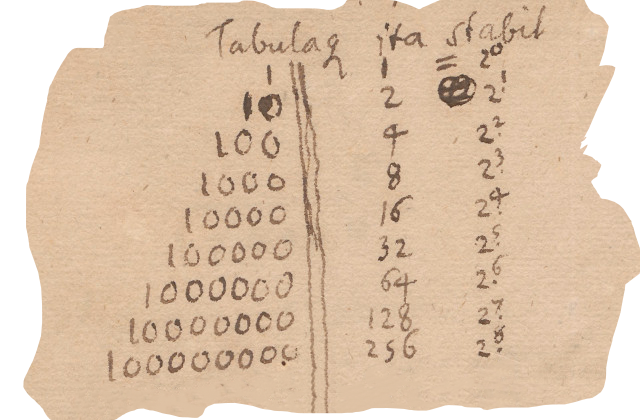 Tabulaq ita stabit
1 1 = 2⁰
10 2 2¹
100 4 2²
1000 8 2³
10000 16 2⁴
100000 32 2⁵
1000000 64 2⁶
10000000 128 2⁷
100000000 256 2⁸